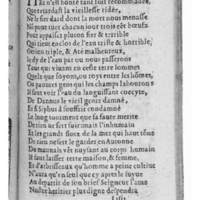 N'est honte tant soit recommandee,
Que retardast la vieillesse ridee,
Ne le fier dard dont la mort nous menasse
Ni pour tuer chacun jour trois cẽt bœufs
peux appaiser pluton fier & terrible
Qui tient enclos de l'eau triste & horrible,
triple, & Atè malheureux,
de l'eau par ou nous passerons
Tous qui vivons en ceste terre sommes
Quels que soyons, ou roys entre les hõmes,
Ou pauvres gens qui les champs labourons
Il faut voir l'eau du languissant cocyte,
De Danaus le vieil genre damné,
Et Sisiphus à souffrir condamné
Le long tourment que sa faute merite
De rien ne sert fuir mars l'inhumain
Et les grands flots de la mer qui haut tone
De rien ne sert se garder en Autonne
Du mauvais vẽt nuysant au corps humain
Il faut laisser terre maison, & femme,
Et d'arbrisseaux qu'homme a peine cultive
N'aura qu'un seul que cy apres le suyve
Au departir de son brief Seigneur l'ame
plus digne despendra